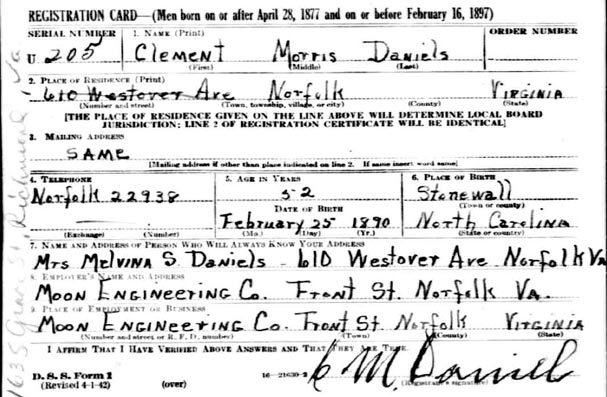 REGISTRATION CARD—(Men born on or after April 28, 1877 and on or before February 16, 1897)
SERIAL NUMBER 1. NAME (Print) ORDER NUMBER
U 205 Clement Morris Daniels
(First) (Middle) (Last)
2. PLACE OF RESIDENCE (Print)
610 Westover Ave Norfolk Virginia
(Number and street) (Town, township, village, or city) (County) (State)
[THE PLACE OF RESIDENCE GIVEN ON THE LINE ABOVE WILL DETERMINE LOCAL BOARD
JURISDICTION; LINE 2 OF REGISTRATION CERTIFICATE WILL BE IDENTICAL]
3. MAILING ADDRESS
SAME
[Mailing address if other than place indicated on line 2. If same insert word same]
4. TELEPHONE 5. AGE IN YEARS 6. PLACE OF BIRTH
Norfolk 22938 52 Stonewall
DATE OF BIRTH (Town or county)
February 25 1890 North Carolina
(Exchange) (Number) (Mo.) (Day) (Yr.) (State or country)
7. NAME AND ADDRESS OF PERSON WHO WILL ALWAYS KNOW YOUR ADDRESS
Mrs Melvina S. Daniels - 610 Westover Ave Norfolk Va
8. EMPLOYER'S NAME AND ADDRESS
Moon Engineering Co. Front St. Norfolk Va.
9. PLACE OF EMPLOYMENT OR BUSINESS
Moon Engineering Co. Front St. Norfolk Virginia
(Number and street or R. F. D. number) (Town) (County) (State)
I AFFIRM THAT I HAVE VERIFIED ABOVE ANSWERS AND THAT THEY ARE TRUE.
D. S. S. Form 1
(Revised 4-1-42) (over) 16—21630-2 C M Daniel
(Registrant's signature)
1635 Grace St Richmond Va